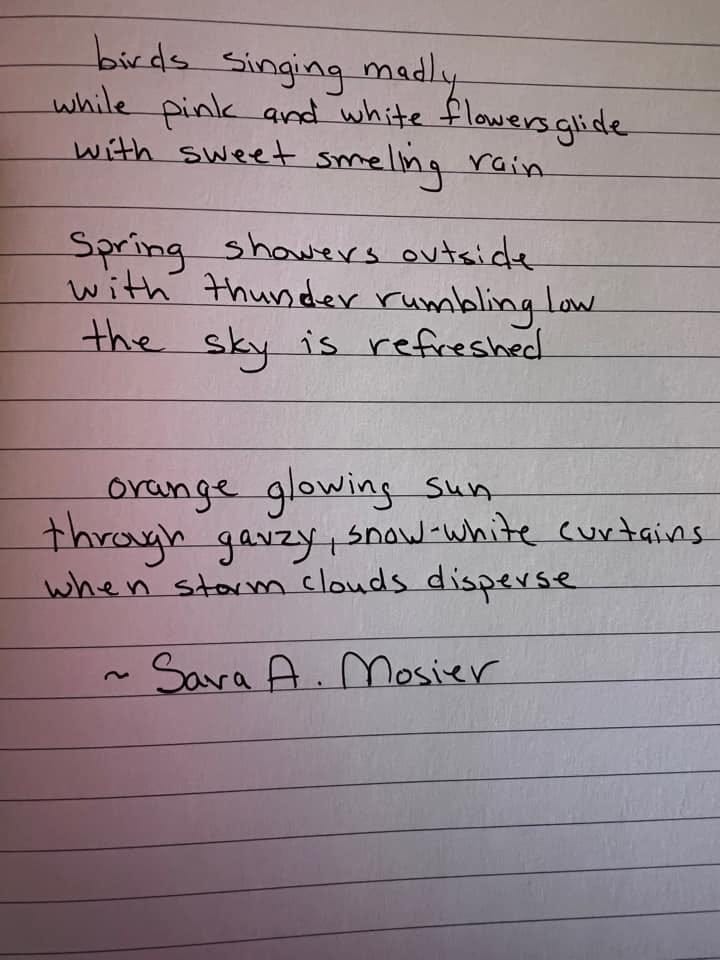 birds singing madly
while pink and white flowers glide
with sweet smeling rain
Spring showers outside
with thunder rumbling low
the sky is refreshed
orange glowing sun
through gauzy, snow-white curtains
when storm clouds disperse
~ Sara A. Mosier